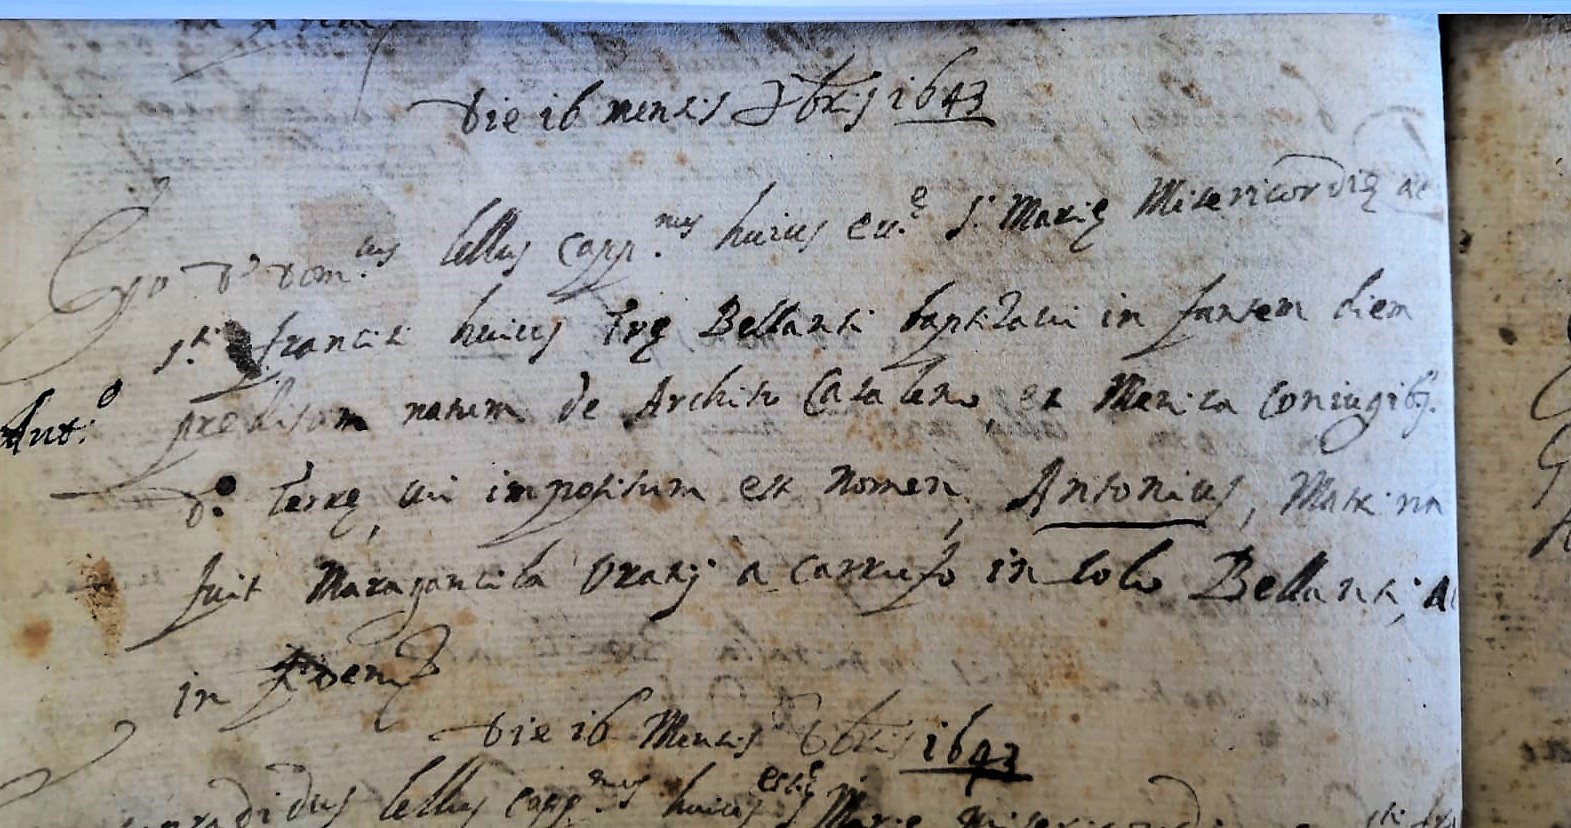 Die 16 mensis Xbris 1643
Ego D. Dom.cus Lellus Capp.nus huius ec.e S. Marię Misericordię ac
S.ti Francisci huius Terę Bellanti baptizavi infantem diem
Ant.o
predictam natum de Archito Catalano et Marica coniugib9.
D.o Terrę, cui impositum est nomen, Antonius, Matrina
fuit Maragantila Oratij a Carrufo incola Bellanti; ac
in fidem
Die 16 Mensis Xbris 1643
Lellus Capp.nus huius ecc.e S. Marie